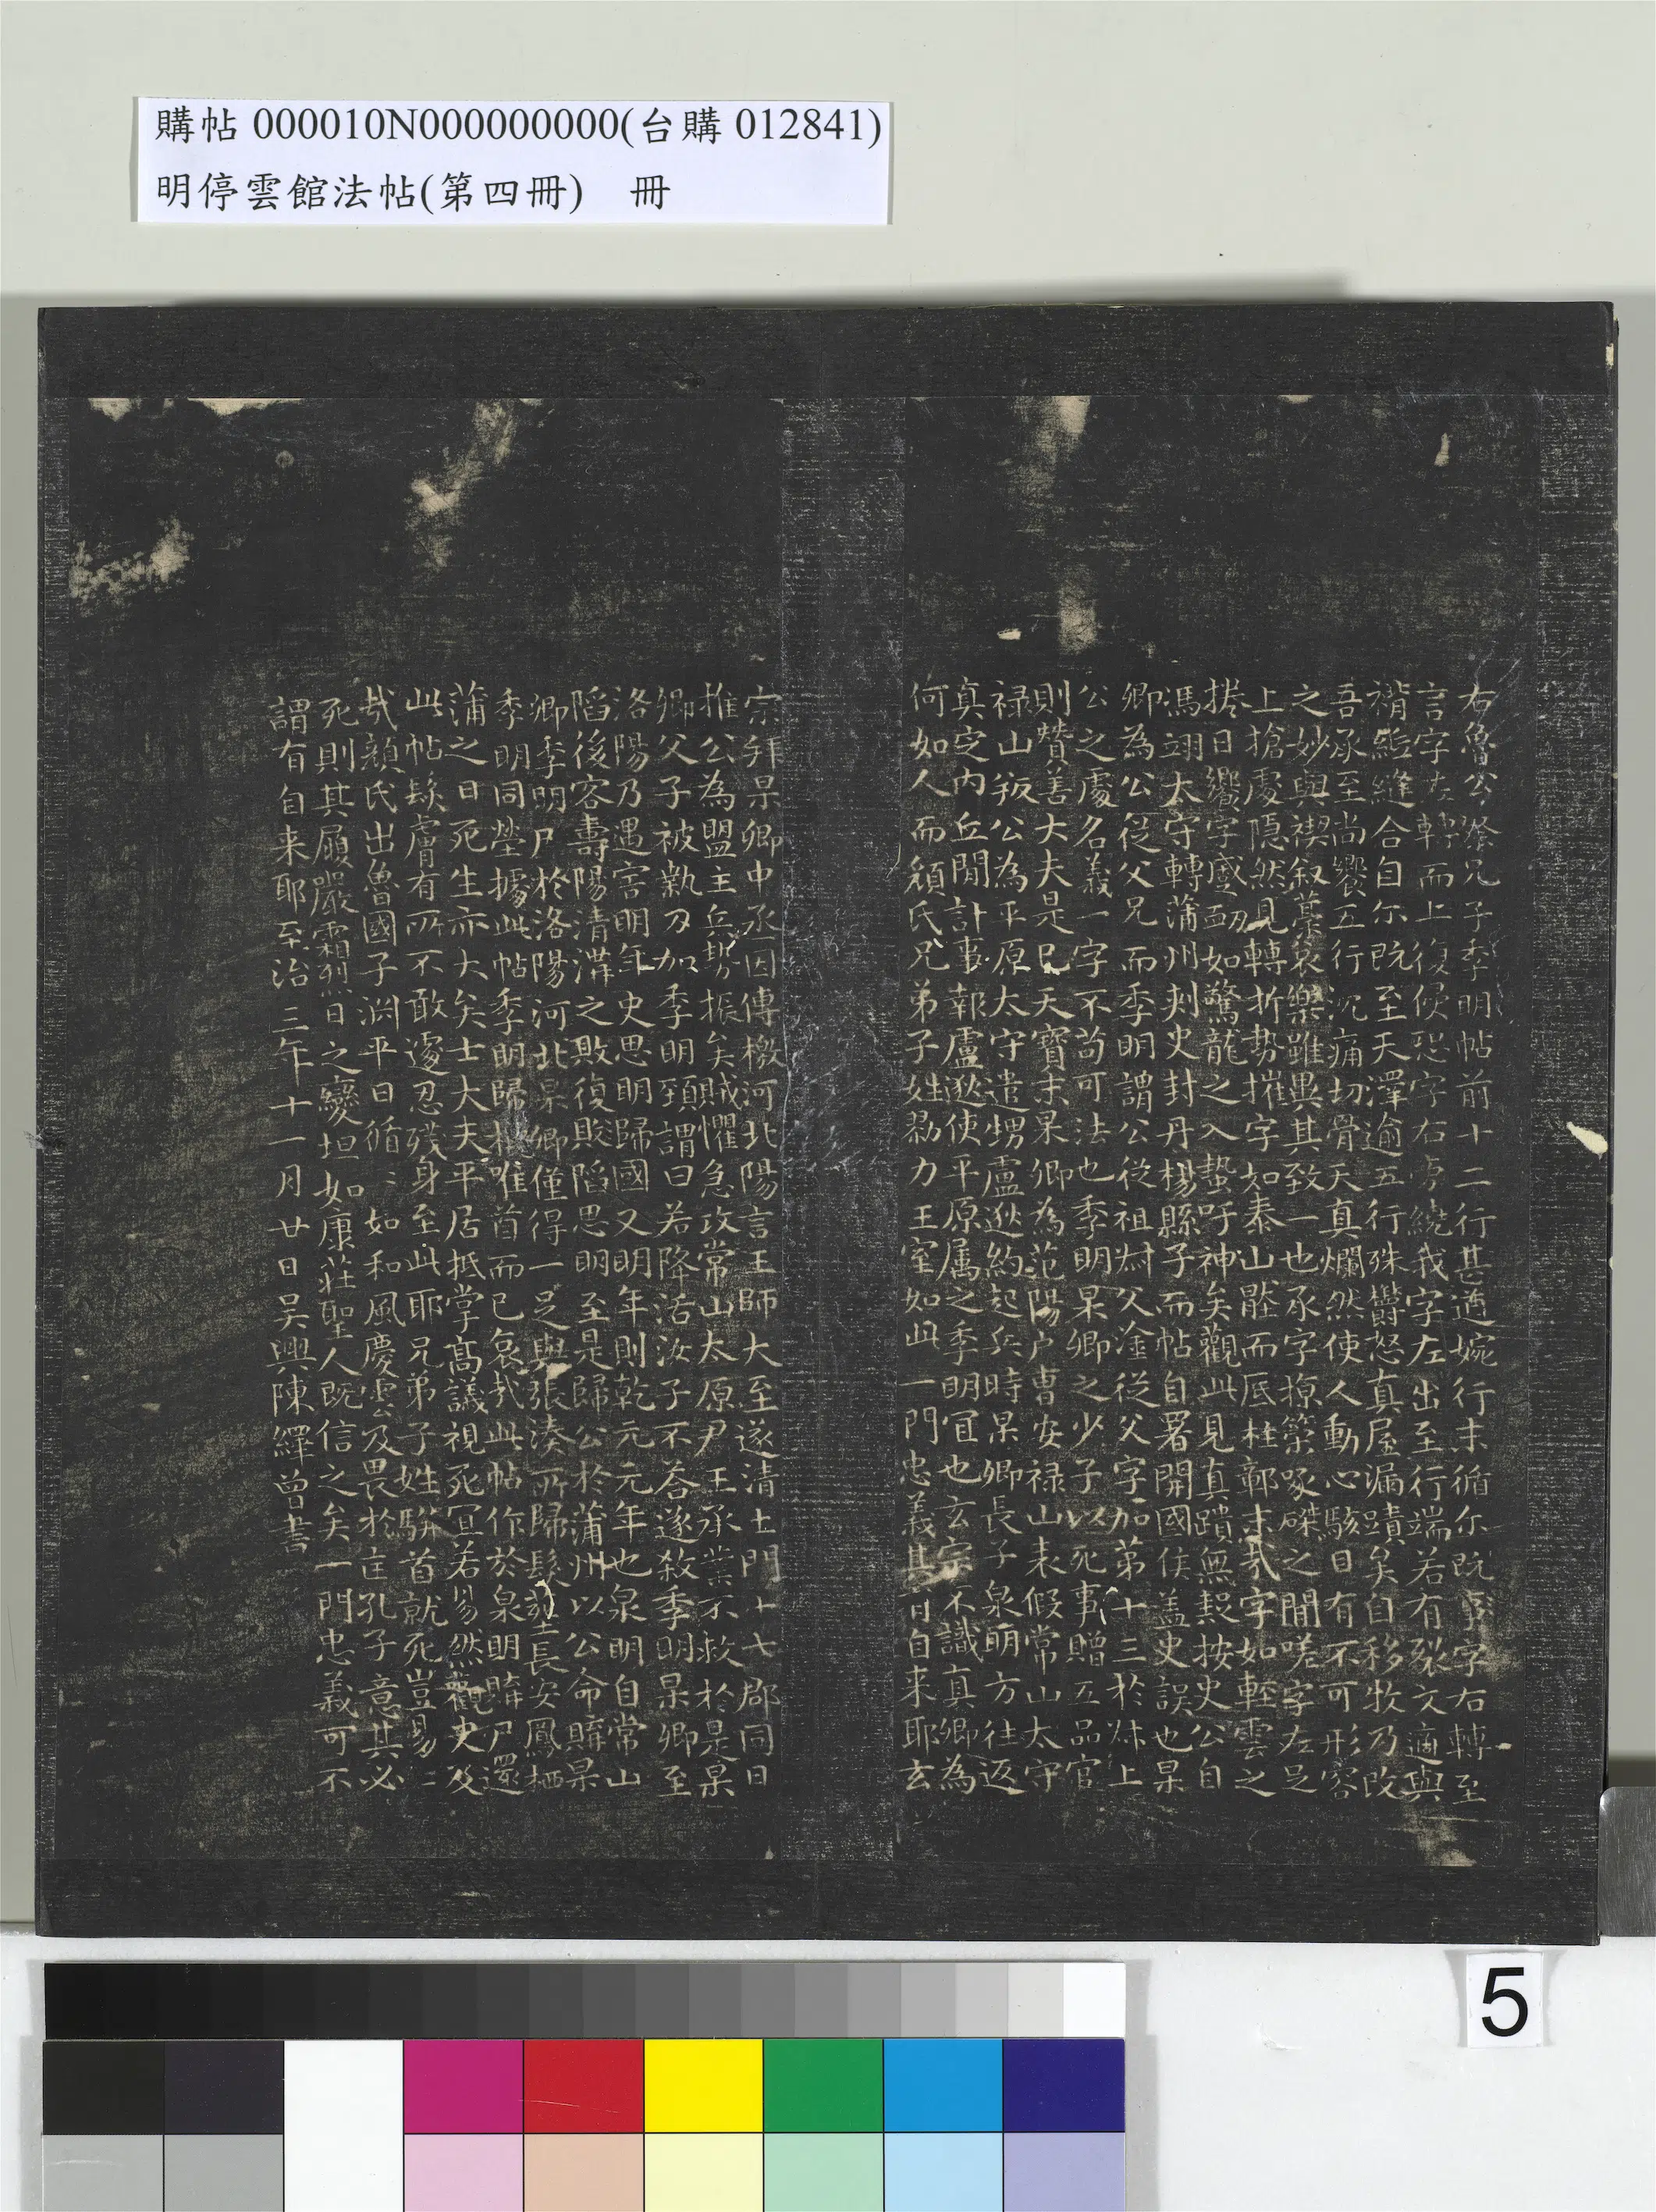 購帖 000010N000000000(台購 012841)
明停雲館法帖(第四冊)　冊
右魯公祭兄子季明帖前十二行甚遒婉行末循尔既字右轉至
言字左轉而上復侵恐字右旁繞我字左出至行端若有裂文適與
褙紙縫合自尔既至天澤逾五行殊欝怒真屋漏蹟矣自移牧乃改
吾承至尚饗五行沉痛切骨天真爛然使人動心駭目有不可形容
之妙與禊叙藁哀樂雖異其致一也承字掠築啄磔之間嗟字左足
上搶處隱然見轉折勢摧字如泰山壓而底柱鄣末哉字如輕雲之
捲日饗字蹙衂如驚龍之入蟄吁神矣觀此見真蹟無疑按史公自
馮翊太守轉蒲州刺史封丹楊縣子而帖自署開國侯蓋史誤也杲
卿為公從父兄而季明謂公從祖尗父淦從父字加第十三於尗上
公之處名義一字不苟可法也季明杲卿之少子以死事贈五品官
則贊善大夫是已天寶末杲卿為范陽户曹安禄山表假常山太守
禄山叛公為平原太守遣甥盧逖約起兵時杲卿長子泉明方往返
真定内丘間計事郭盧逖使平原属之季明冝也玄宗不識真卿為
何如人而顔氏兄弟子姓勠力王室如此一門忠義其有自来耶玄
宗拜杲卿中丞因傳檄河北陽言王師大至遂清土門十七郡同日
推公為盟主兵勢振矣賊懼急攻常山太原尹王承業不救於是杲
卿父子被執刃加季明頸謂曰若降活汝子不荅遂殺季明杲卿至
洛陽乃遇害明年史思明歸國又明年則乾元元年也泉明自常山
陷後客壽陽清溝之敗復敗陷思明至是歸公於蒲州以公命購杲
卿季明尸於洛陽河北杲卿僅得一足與張湊所歸髪塟長安鳳栖
季明同塋據此帖季明歸櫬唯首而已哀㢤此帖作於泉明購尸還
蒲之日死生亦大矣士大夫平居抵掌髙議視死冝若易然觀史及
此帖髮膚有所不敢遽忍殘身至此耶兄弟子姓駢首就死豈易易
㢤顔氏出魯國子渊平日循循如和風慶雲及畏於匡孔子意其必
死則其履嚴霜烈日之變坦如康莊聖人既信之矣一門忠義可不
謂有自来耶至治三年十一月廿日吴興陳繹曾書
5